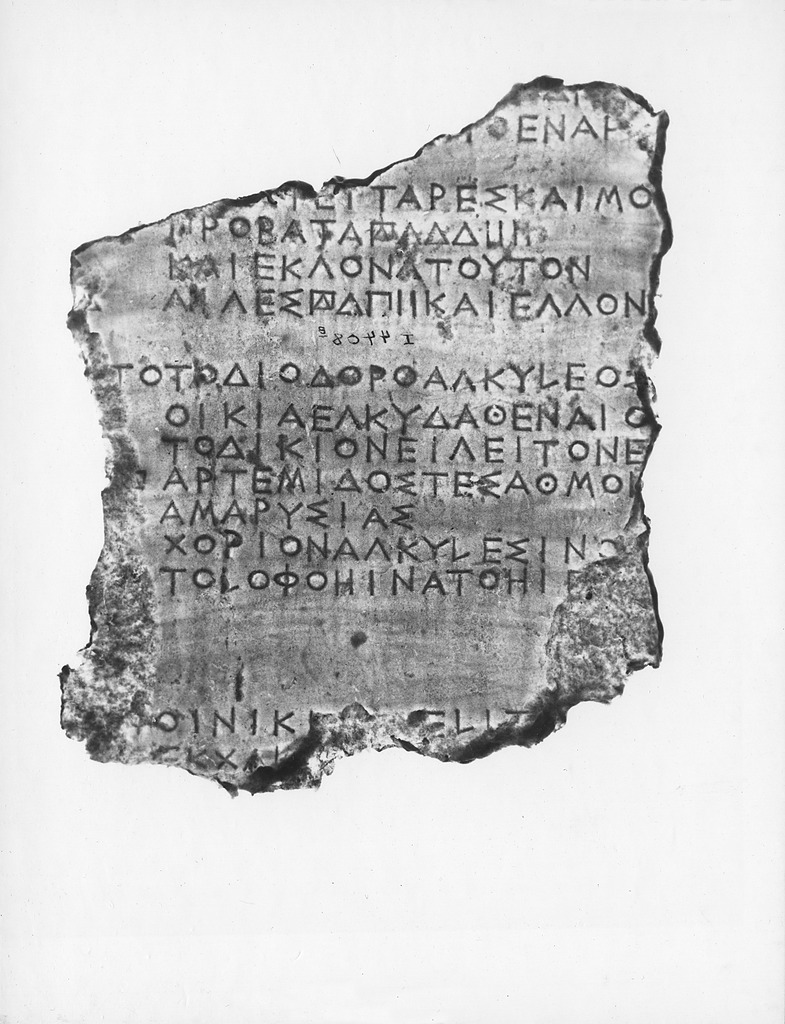 ΘΕΝΑ
ΤΕΤΤΑΡΕΣΚΑΙΜΟ
ΠΡΟΒΑΤΑ𐅄ΔΔΔΠΙΙ
ΚΑΙΕΚΛΟΝΑΤΟΥΤΟΝ
ΑΙΛΕΣ𐅄ΔΠΙΙΚΑΙΕΛΛΟΝ
I 4408 B
ΤΟΤΟΔΙΟΔΟΡΟΑΛΚΥLΕΟΣ
ΟΙΚΙΑΕΛΚΥΔΑΘΕΝΑΙΟ
ΤΟΔΙΚΙΟΝΕΙΛΕΙΤΟΝΕ
ΑΡΤΕΜΙΔΟΣΤΕΣΑΘΜΟΝ
ΑΜΑΡΥΣΙΑΣ
ΧΟΡΙΟΝΑΛΚΥLΕΣΙΝΟ
ΤΟLΟΦΟΗΙΝΑΤΟΗΙΕ
ΟΙΝΙΚ ΕLΙΤ
ΕΚΧ